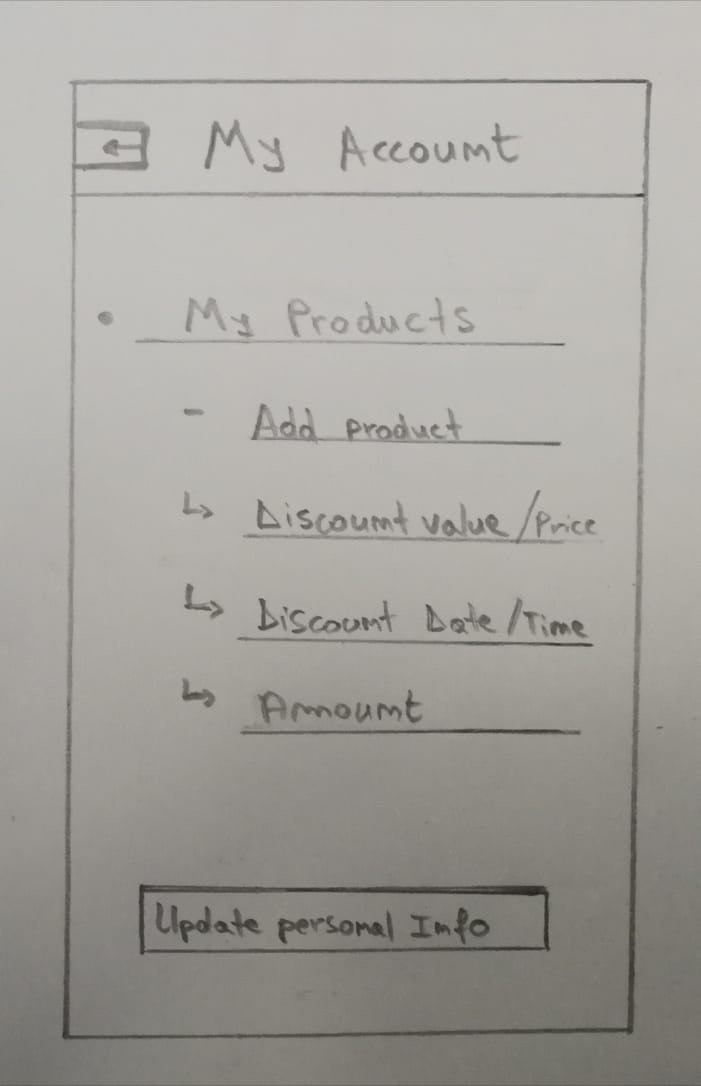 My Account
My Products
- Add product
↳ Discount value/Price
↳ Discount Date/Time
↳ Ammount
Update personal Info